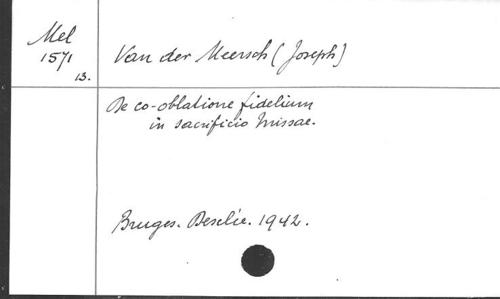 Mel
1571
13.
Van der Meersch (Joseph)
De co-oblatione fidelium
in sacrificio Missae.
Bruges. Desclée. 1942.